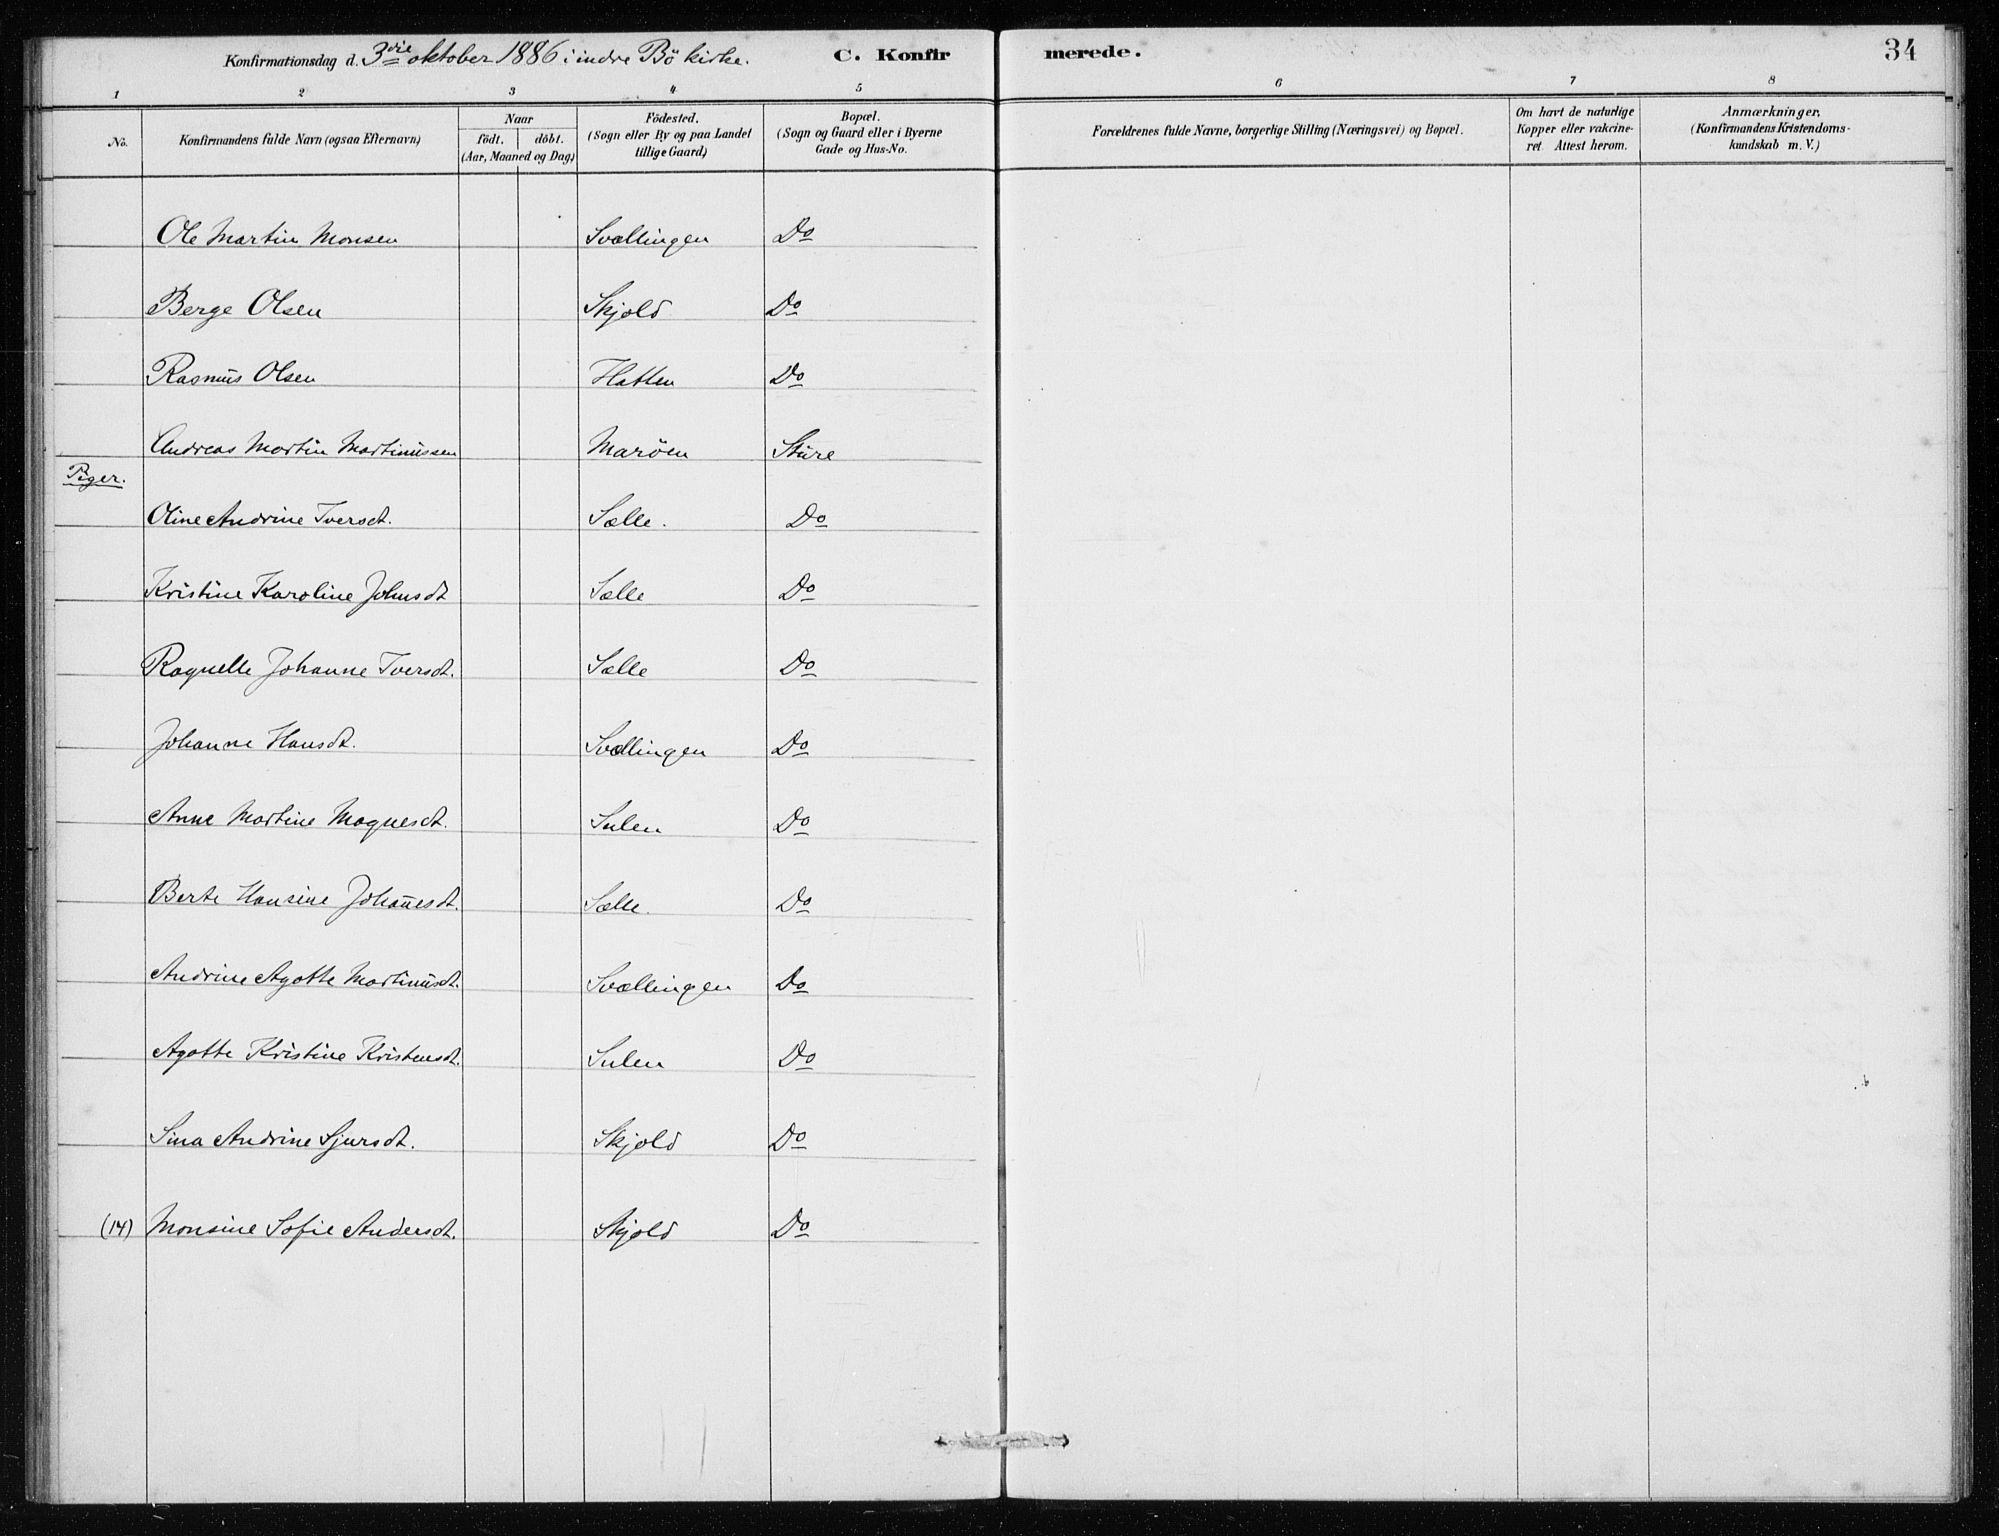 Konfirmationsdag d. 3die oktober 1886 i indre Bö kirke. C. Konfirmerede. 34
1 2 3 4 5 6 7 8
No. Konfirmandens fulde Navn (ogsaa Efternavn) Naar födt. döbt. (Aar, Maaned og Dag) Födested. (Sogn eller By og paa Landet tillige Gaard) Bopæl. (Sogn og Gaard eller i Byerne Gade og Hus-No. Forældrenes fulde Navne, borgerlige Stilling (Næringsvei) og Bopæl. Om havt de naturlige Kopper eller vakcineret Attest herom. Anmærkninger, (Konfirmandens Kristendomskundskab m. V.)
Ole Martin Monsen Svællingen Do
Berge Olsen Skjold Do
Rasmus Olsen Hatten Do
Andreas Martin Martinussen Marøen Sture
Piger.
Oline Andrine Iversdt. Sælle. Do
Kristine Karoline Johnsdt Sælle Do
Raguelle Johanne Iversdt. Sælle Do
Johanne Hansdt. Svællingen Do
Anne Martine Magnesdt. Sulen Do
Berte Hansine Johan̄esdt. Sælle. Do
Andrine Agotte Martinusdt. Svællingen Do
Agotte Kristine Kristensdt. Sulen Do
Sina Andrine Sjursdt. Skjold Do
(14) Monsine Sofie Andersdt. Skjold Do